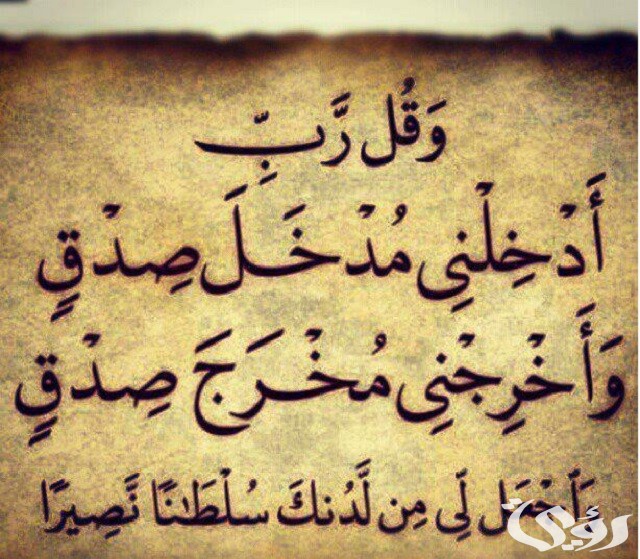 وَقُل رَّبِّ
أَدْخِلْنِي مُدْخَلَ صِدْقٍ
وَأَخْرِجْنِي مُخْرَجَ صِدْقٍ
وَٱجْعَل لِّي مِن لَّدُنكَ سُلْطَٰنًا نَّصِيرًا
رؤى